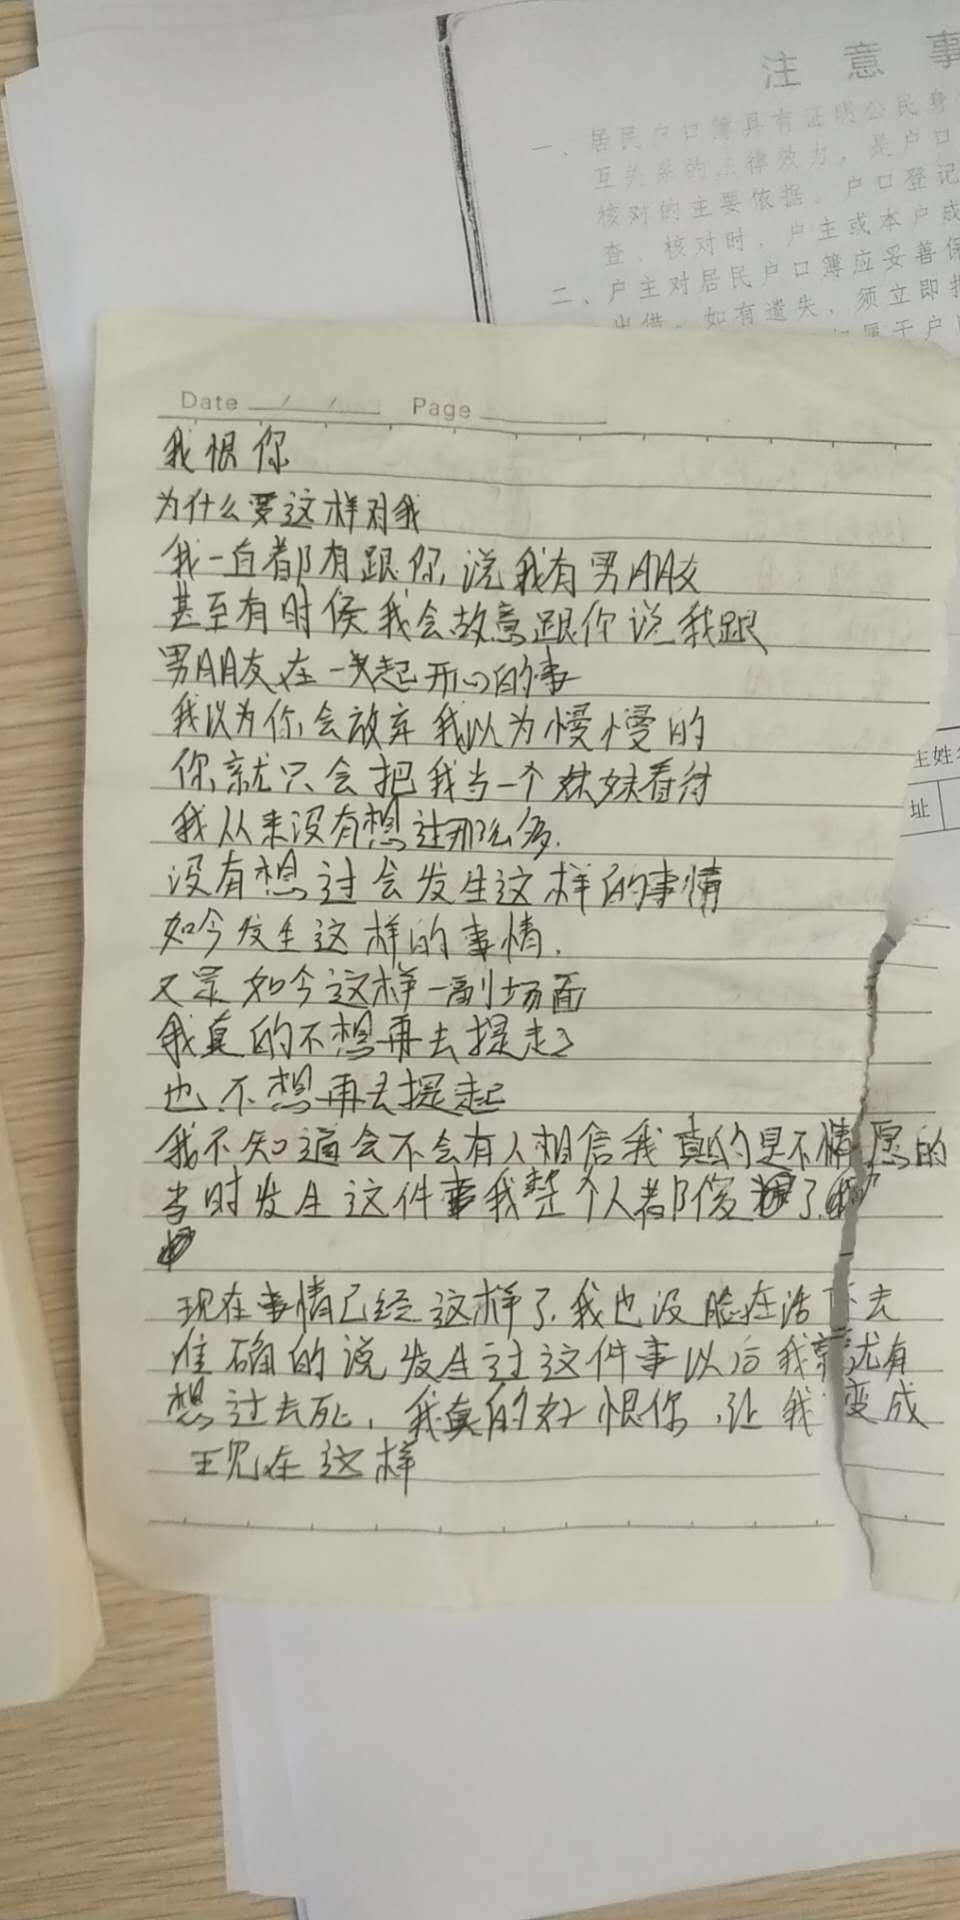 注 意 事
一、居民户口簿具有证明公民身
互关系的法律效力，是户口
核对的主要依据。户口登记
查、核对时，户主或本户成
二、户主对居民户口簿应妥善保
出借。如有遗失，须立即报
属于户
Date / / Page
我恨你
为什么要这样对我
我一直都有跟你说我有男朋友
甚至有时候我会故意跟你说我跟
男朋友在一起开心的事
我以为你会放弃 我以为慢慢的
你就只会把我当一个妹妹看待
我从来没有想过那么多.
没有想过会发生这样的事情
如今发生这样的事情.
又是如今这样一副场面
我真的不想再去提起
也不想再去提起
我不知道会不会有人相信我真的是不情愿的
当时发生这件事我整个人都傻了.
现在事情已经这样了.我也没脸在活下去
准确的说发生过这件事以后我就有
想过去死，我真的好恨你，让我变成
现在这样
主姓
址